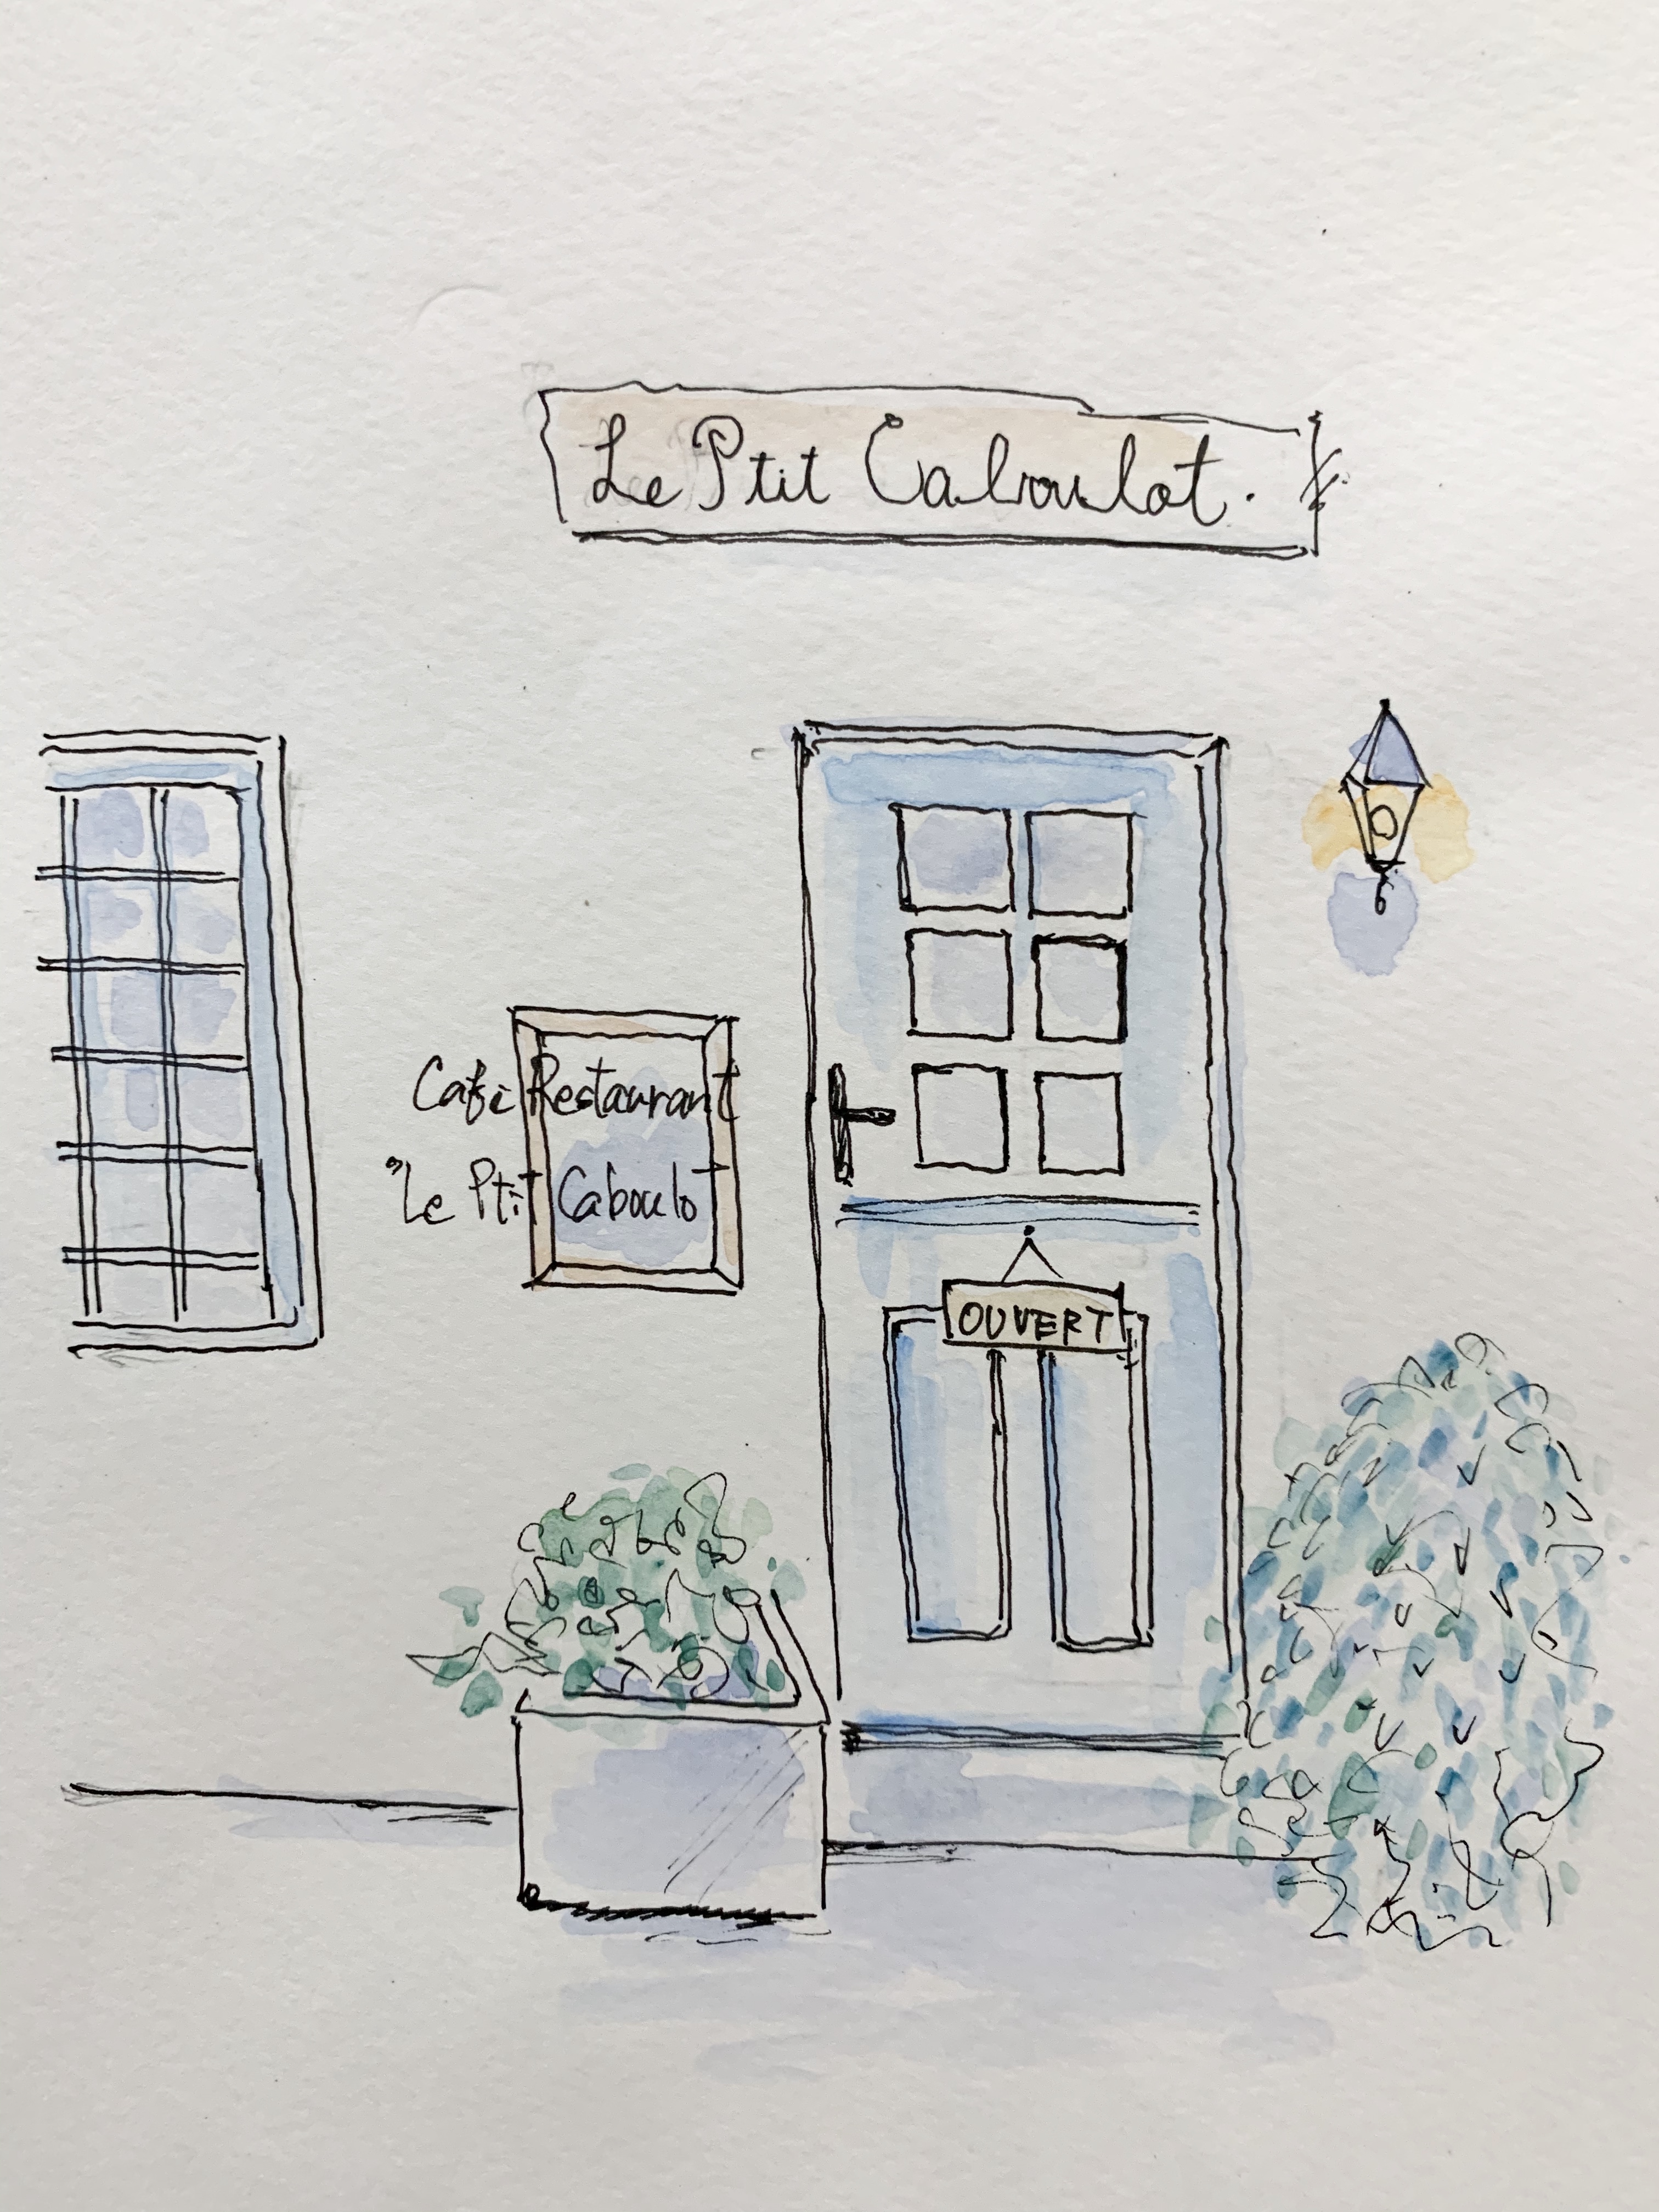 Le Ptit Caboulot.
Café Restaurant
"Le Ptit Caboulot
OUVERT